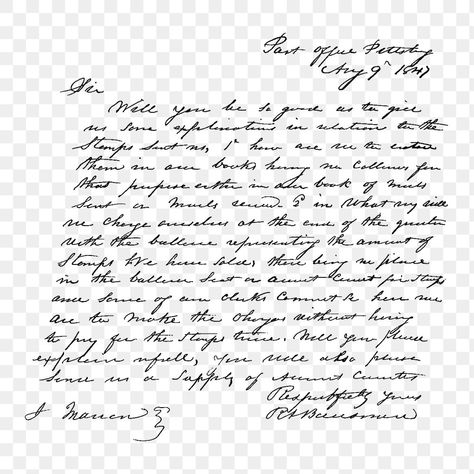 Post Office Pittsburg
Aug 9th 1847
Sir
Will you be so good as to give
us some explanations in relation to the
Stamps Sent us, 1st how are we to enter
them in our books having no Collumn for
that purpose either in our book of Mails
Sent or Mails received 2d in What way will
we charge ourselves at the end of the quarter
with the ballance representing the amount of
Stamps We have sold, there being no place
in the ballance Sheet or account Current for Stamps
and some of our clerks cannot see how we
are to make the charges without having
to pay for the Stamps twice. Will you please
explain in full, you will also please
send us a Supply of Account Currents
Respectfully yours
J Marron